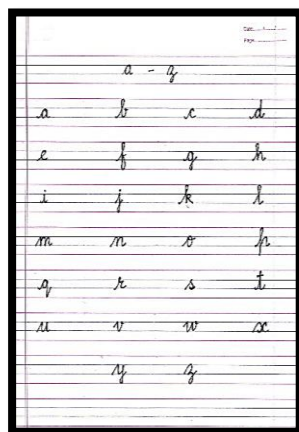 Date
Page
a - z
a b c d
e f g h
i j k l
m n o p
q r s t
u v w x
y z